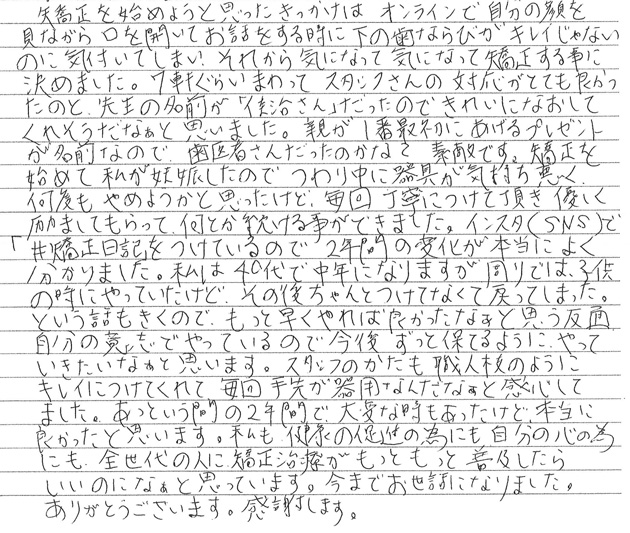 矯正を始めようと思ったきっかけは オンラインで自分の顔を
見ながら 口を開いてお話をする時に 下の歯ならびが キレイじゃない
のに 気付いてしまい それから 気になって 気になって 矯正する事に
決めました。7軒ぐらいまわって スタッフさんの 対応がとても良かっ
たのと、先生の名前が「俊治さん」だったので きれいになおして
くれそうだなぁと 思いました。親が 1番最初にあげるプレゼント
が名前なので、歯医者さんだったのかな? 素敵です。矯正を
始めて 私が妊娠したので つわり中に 器具が気持ち悪く
何度も やめようかと思ったけど、毎回 丁寧につけて頂き 優しく
励ましてもらって 何とか続ける事ができました。インスタ(SNS)で
「#矯正日記」をつけているので 2年間の変化が本当に よく
分かりました。私は 40代で中年になりますが 回りでは、子供
の時にやっていたけど、その後ちゃんとつけてなくて戻ってしまった。
という話もきくので、もっと早くやれば良かったなぁと 思う反面
自分の意志でやっているので 今後 ずっと保てるように やって
いきたいなぁと 思います。スタッフのかたも 職人技のように
キレイにつけてくれて 毎回 手先が器用なんだなぁと 感じして
ました。あっという間の2年間で、大変な時もあったけど、本当に
良かったと思います。私も、健康の促進の為にも 自分の心の為
にも、全世代の人に 矯正治療が もっともっと 普及したら
いいのになぁと 思っています。今までお世話になりました。
ありがとうございます。感謝します。